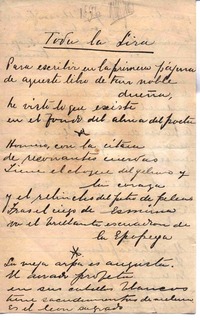 Toda la Lira
Para escribir en la primera página
de aqueste libro de tan noble
dueña,
he visto lo que existe
en el fondo del alma del poeta
Homero, con la cítara
de resonantes cuerdas
tiene el choque del yelmo y
la coraza
y el relincho del potro de pelea
tras el ciego de Esmirna
va el brillante escuadrón de
la Epopeya
La vieja arpa es augusta.
Un airado profeta
en sus cabellos blancos
tiene sacudimientos de melena
Es el león sagrado